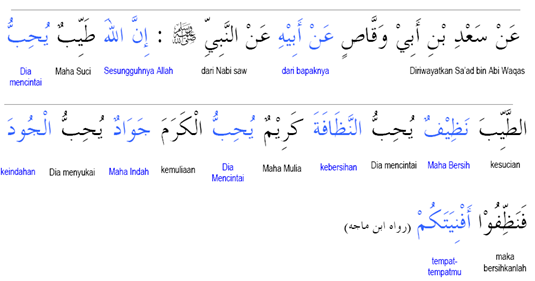 عَنْ سَعْدِ بْنِ أَبِيْ وَقَّاصٍ عَنْ أَبِيْهِ عَنْ النَّبِيِّ ﷺ : إِنَّ اللهَ طَيِّبٌ يُحِبُّ
Diriwayatkan Sa'ad bin Abi Waqas dari bapaknya dari Nabi saw Sesungguhnya Allah Maha Suci Dia mencintai
الطَّيِّبَ نَظِيْفٌ يُحِبُّ النَّظَافَةَ كَرِيْمٌ يُحِبُّ الْكَرَمَ جَوَادٌ يُحِبُّ الْجُودَ
kesucian Maha Bersih Dia mencintai kebersihan Maha Mulia Dia Mencintai kemuliaan Maha Indah Dia menyukai keindahan
فَنَظِّفُوْا أَفْنِيَتَكُمْ (رواه ابن ماجه)
maka bersihkanlah tempat-tempatmu